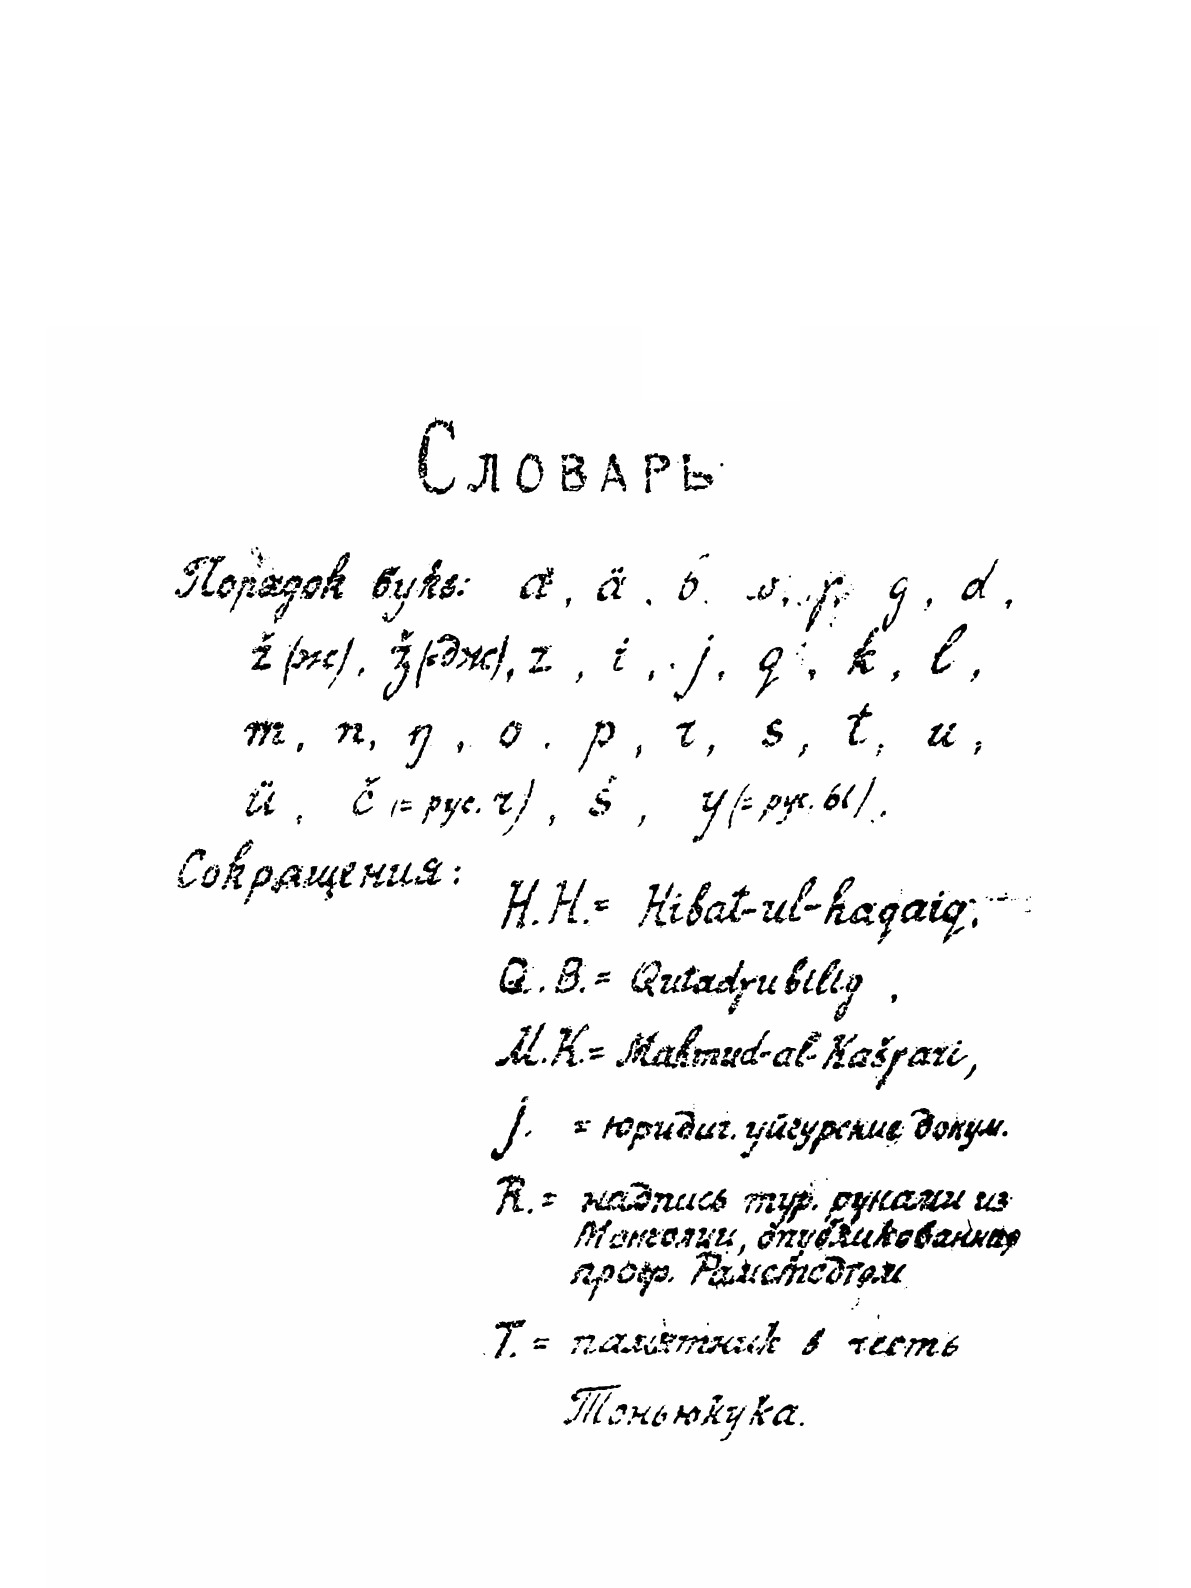 Словарь
Порядок букв: a, ä, b, v, γ, g, d,
ž (ж), ǯ (=дж), z, i, j, q, k, l,
m, n, ŋ, o, p, r, s, t, u,
ü, č (= рус. ч), š, y (= рус. ы).
Сокращения:
H.H.= Hibat-ul-haqaiq,
Q.B.= Qutadγu bilig,
M.K.= Mahmud-al-Kašγari,
j. = юридич. уйгурские докум.
R.= надпись тур. рунами из
Монголии, опубликованная
проф. Рамстедтом
T.= памятник в честь
Тоньюкука.